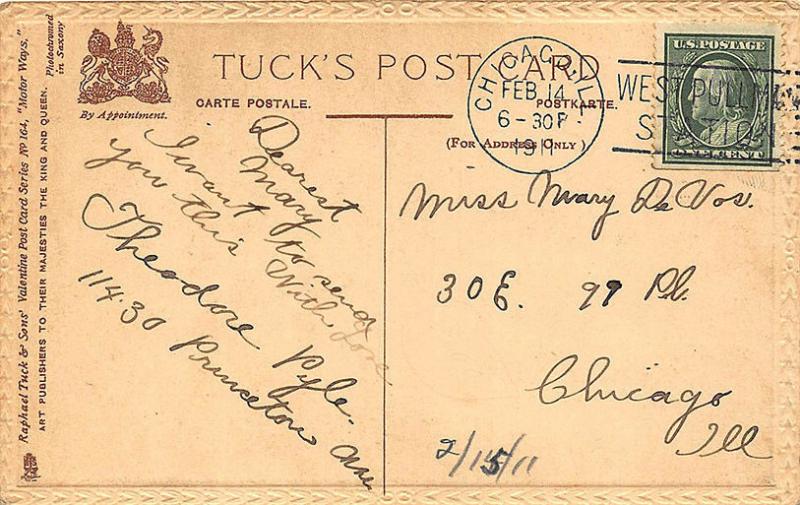 Raphael Tuck & Sons' Valentine Post Card Series No 164, "Motor Ways,"
ART PUBLISHERS TO THEIR MAJESTIES THE KING AND QUEEN.
Photochromed
in Saxony
By Appointment.
TUCK'S POST CARD
CARTE POSTALE.
POSTKARTE.
(For Address Only)
CHICAGO, ILL.
FEB 14
6-30P
1911
WEST PULLMAN
STATION
U.S. POSTAGE
ONE CENT
Dearest
Mary
I want to send
you this With Love
Theodore Pyle.
114.30 Princeton Ave
Miss Mary De Vos.
30 E. 99 Pl.
Chicago
Ill
2/15/11